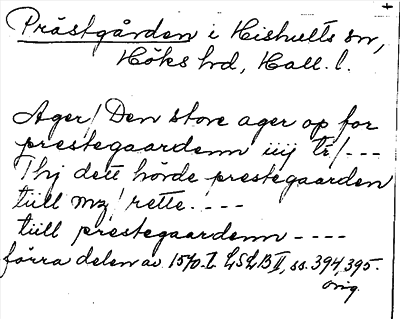 Prästgården i Hishults sn,
Höks hd, Hall. l.
Ager/ Den store ager op for
prestegaardenn iiij tr/---
Thj dett hörde prestegaarden
tiill mz/ rette.----
tiill prestegaardenn ----
förra delen av 1570. I LSLB II, ss. 394, 395.
orig.